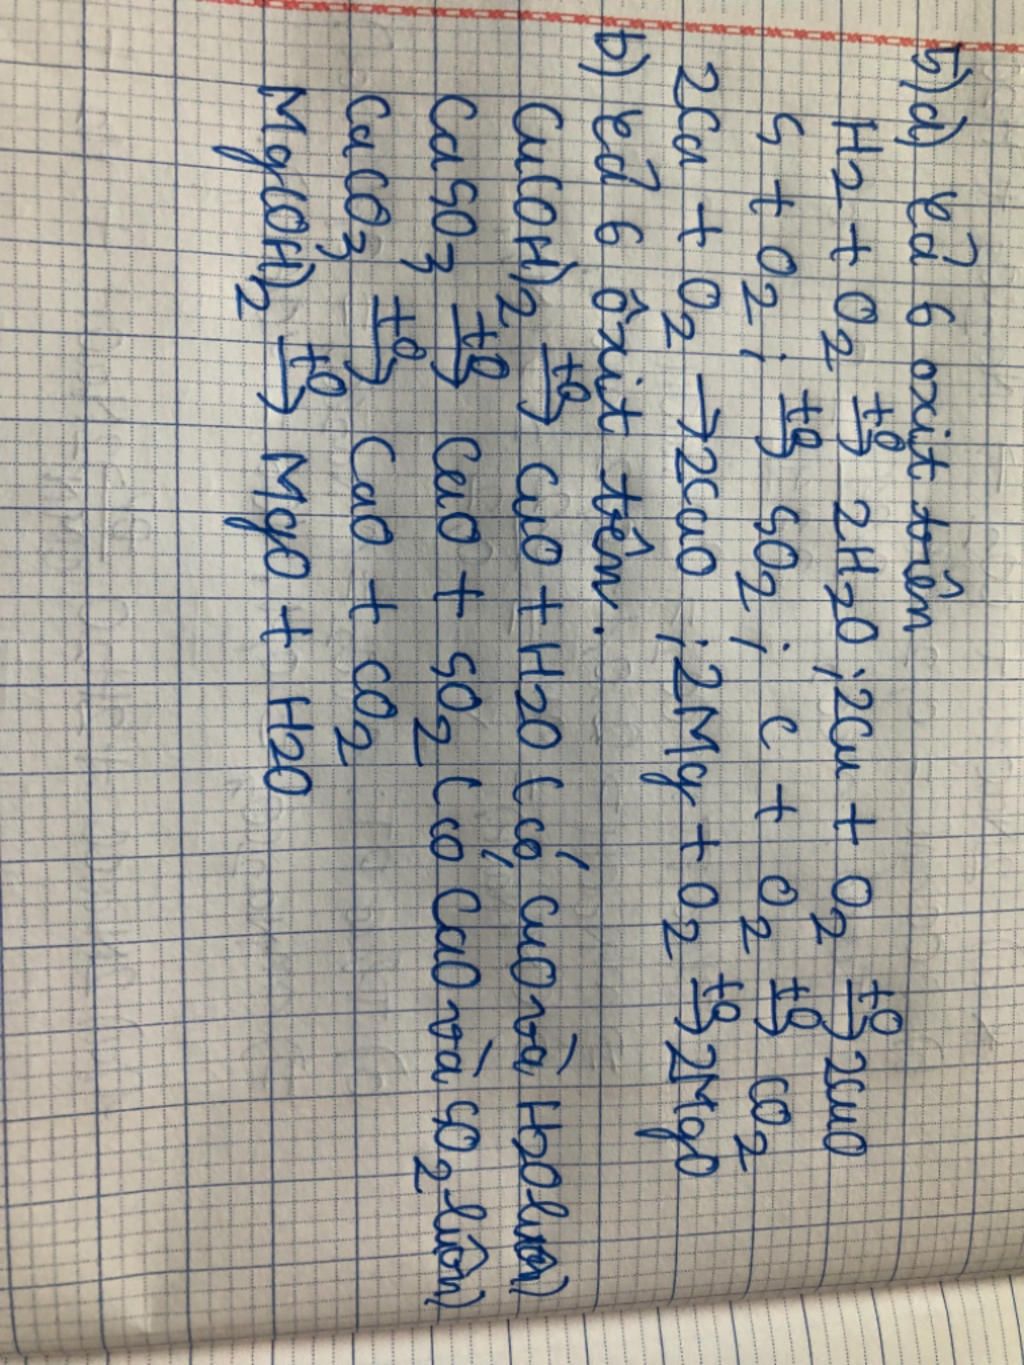 5)a) cả 6 oxit trên
H2 + O2 t° → 2H2O ; 2Cu + O2 t° → 2CuO
S + O2 ; t° → SO2 ; C + O2 t° → CO2
2Ca + O2 → 2CaO ; 2Mg + O2 t° → 2MgO
b) cả 6 ôxit tên.
Cu(OH)2 t° → CuO + H2O (có CuO và H2O luôn)
CaSO3 t° → CaO + SO2 (có CaO và SO2 luôn)
CaCO3 t° → CaO + CO2
Mg(OH)2 t° → MgO + H2O